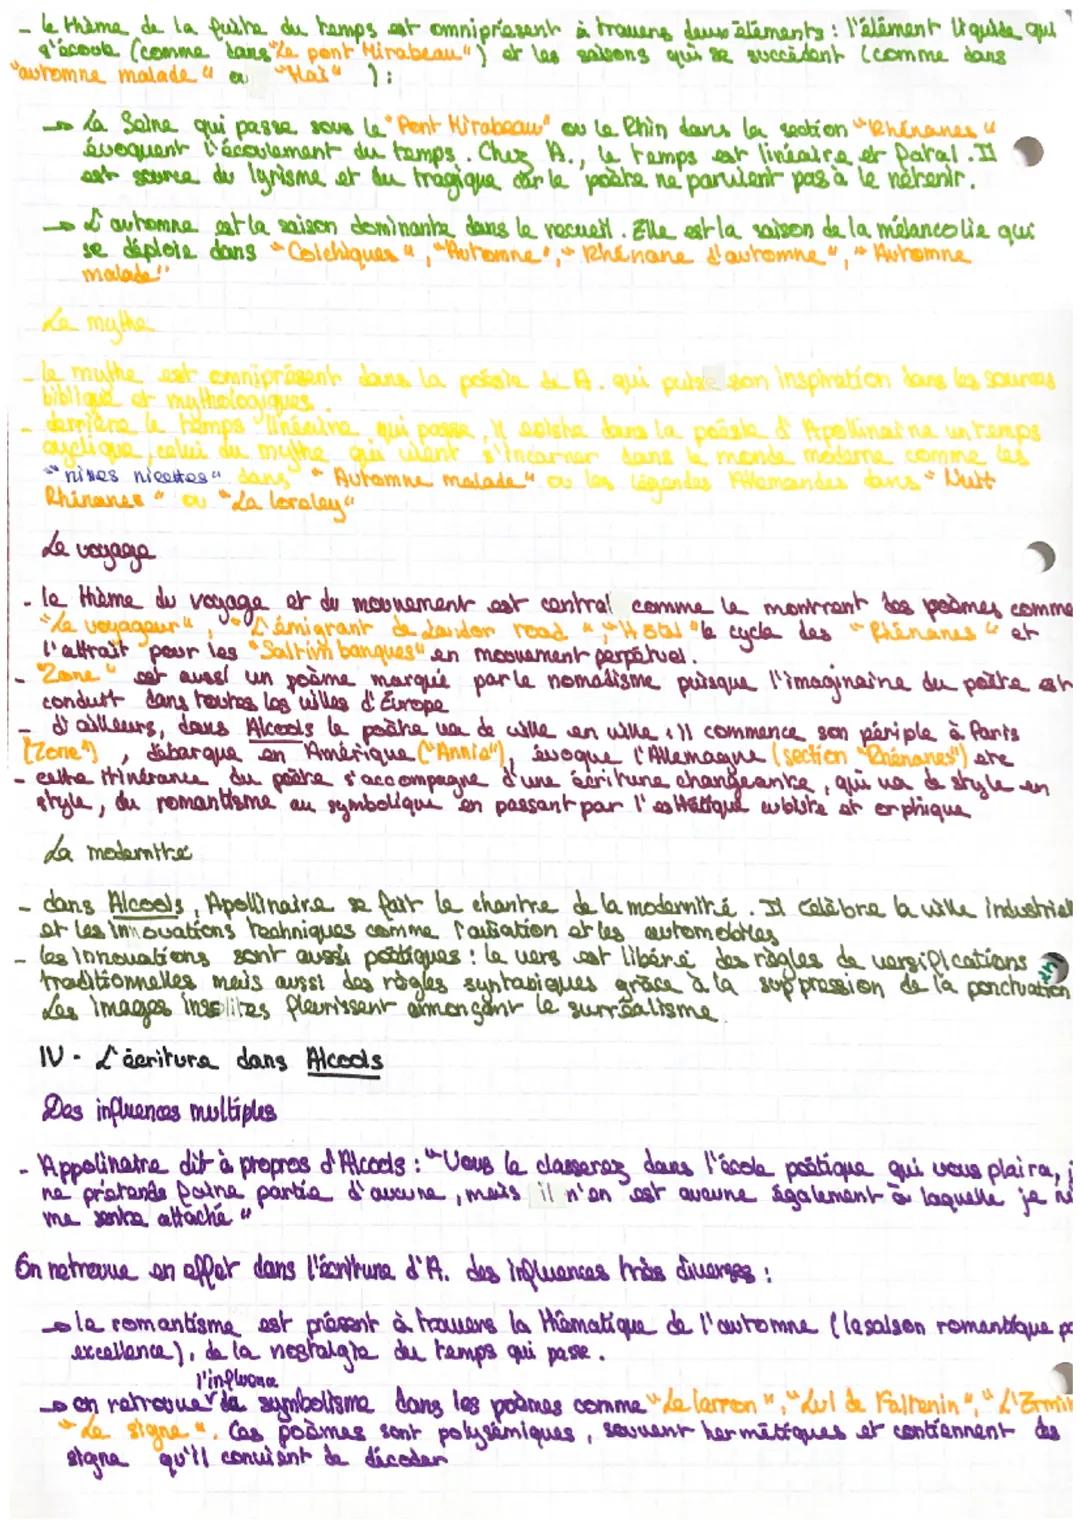 - le thème de la fuite du temps est omniprésent à travers deux éléments : l'élément liquide qui
s'écoule (comme dans "Le pont Mirabeau") et les saisons qui se succèdent (comme dans
"automne malade" ou "Mai") :
→ La Seine qui passe sous le "Pont Mirabeau" ou le Rhin dans la section "Rhénanes"
évoquent l'écoulement du temps. Chez A., le temps est linéaire et fatal. Il
est source du lyrisme et du tragique car le poète ne parvient pas à le retenir.
→ L'automne est la saison dominante dans le recueil. Elle est la saison de la mélancolie qui
se déploie dans "Colchiques", "Automne", "Rhénane d'automne", "Automne
malade"
Le mythe
- le mythe est omniprésent dans la poésie de A. qui puise son inspiration dans les sources
biblique et mythologiques.
- derrière le temps linéaire qui passe, il existe dans la poésie d'Apollinaire un temps
cyclique, celui du mythe qui vient s'incarner dans le monde moderne comme les
"nixes nicettes" dans "Automne malade" ou les légendes Allemandes dans "Nuit
Rhénanes" ou "La loreley"
Le voyage
- le thème du voyage et du mouvement est central comme le montrent les poèmes comme
"Le voyageur", "L'émigrant de Landor road", "Hôtel" le cycle des "Rhénanes" et
l'attrait pour les "Saltimbanques" en mouvement perpétuel.
- "Zone" est aussi un poème marqué par le nomadisme puisque l'imaginaire du poète est
conduit dans toutes les villes d'Europe
- d'ailleurs, dans Alcools le poète va de ville en ville : il commence son périple à Paris
("Zone"), débarque en Amérique ("Annie"), évoque l'Allemagne (section "Rhénanes") etc
- cette itinérance du poète s'accompagne d'une écriture changeante, qui va de style en
style, du romantisme au symbolique en passant par l'esthétique cubiste et orphique
La modernité
- dans Alcools, Apollinaire se fait le chantre de la modernité. Il célèbre la ville industriell
et les innovations techniques comme l'aviation et les automobiles
- les innovations sont aussi poétiques : le vers est libéré des règles de versifications
traditionnelles mais aussi des règles syntaxiques grâce à la suppression de la ponctuation
Les images insolites fleurissent annonçant le surréalisme
IV - L'écriture dans Alcools
Des influences multiples
- Appolinaire dit à propos d'Alcools : "Vous le classerez dans l'école poétique qui vous plaira, j
ne prétends faire partie d'aucune, mais il n'en est aucune également à laquelle je ne
me sente attaché"
On retrouve en effet dans l'écriture d'A. des influences très diverses :
→ le romantisme est présent à travers la thématique de l'automne (la saison romantique pa
excellence), de la nostalgie du temps qui passe.
→ on retrouve l'influence du symbolisme dans les poèmes comme "Le larron", "Lul de Faltenin", "L'Ermit
"Le signe". Ces poèmes sont polysémiques, souvent hermétiques et contiennent des
signe qu'il convient de décoder